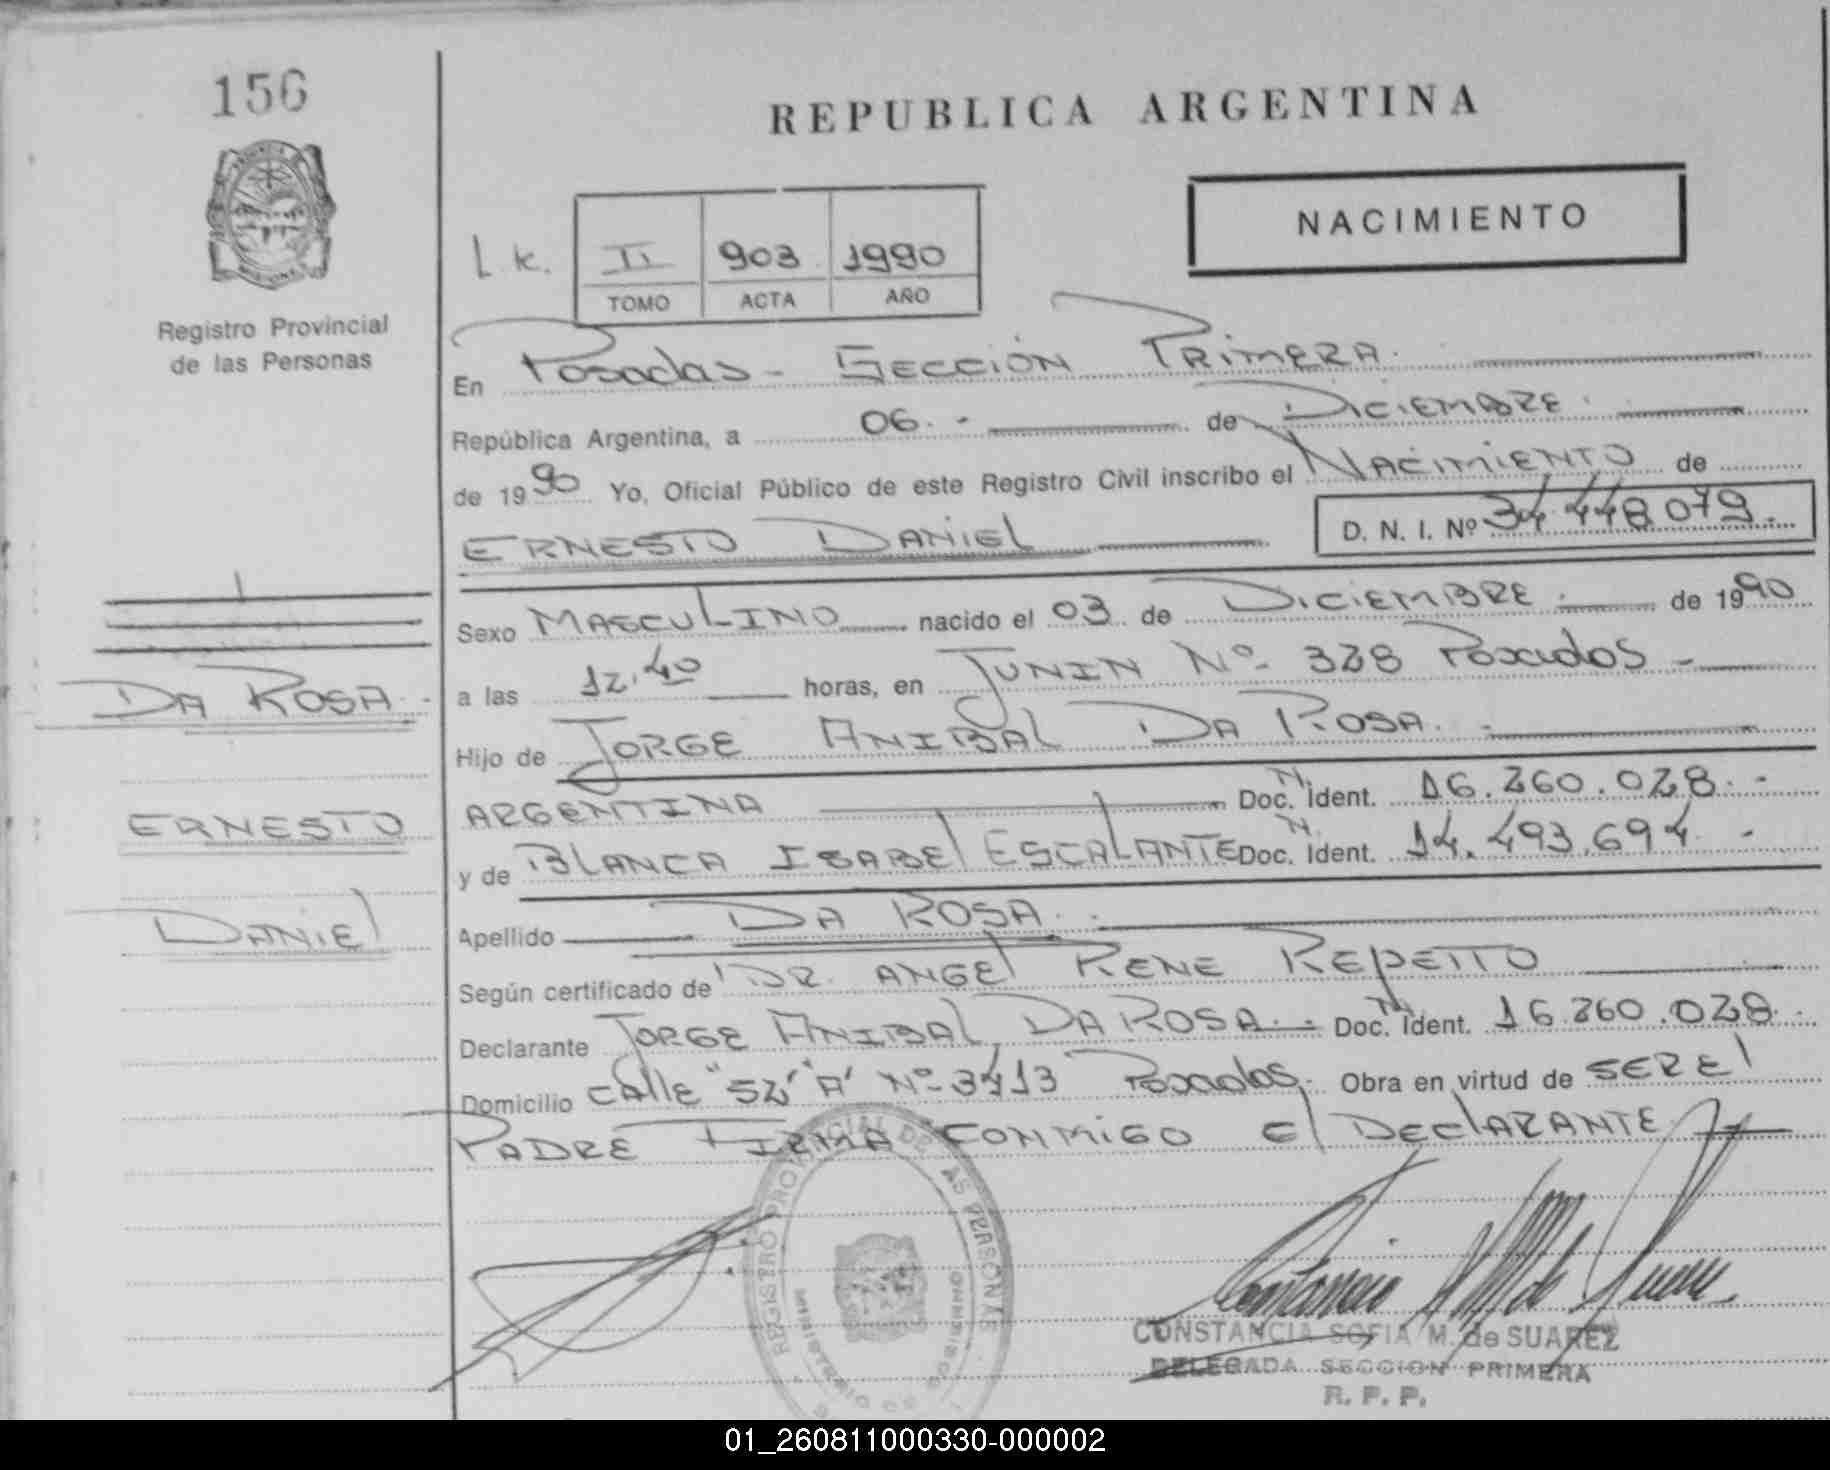 156
REPUBLICA ARGENTINA
NACIMIENTO
L. K.
II 903 1990
TOMO ACTA AÑO
Registro Provincial
de las Personas
En Posadas - SECCIÓN PRIMERA.
República Argentina, a 06. - de DICIEMBRE.
de 1990 Yo, Oficial Público de este Registro Civil inscribo el NACIMIENTO de
ERNESTO DANIEL D. N. I. Nº 34.448.079.-
Sexo MASCULINO nacido el 03 de DICIEMBRE. de 1990
a las 12.40 horas, en JUNIN Nº 328 Posadas -
DA ROSA. -
Hijo de JORGE ANIBAL DA ROSA. -
ARGENTINA Doc. N. Ident. 16.260.028. -
ERNESTO
y de BLANCA ISABEL ESCALANTE Doc. N. Ident. 14.493.694 -
DANIEL
Apellido DA ROSA. -
Según certificado de DR. ANGEL RENE REPETTO
Declarante JORGE ANIBAL DA ROSA. - Doc. N. Ident. 16.260.028. -
Domicilio CALLE "52" "A" Nº 3413 Posadas. Obra en virtud de SER EL
PADRE FIRMA CONMIGO El DEClARANTE
REGISTRO PROVINCIAL DE LAS PERSONAS
MINISTERIO DE GOBIERNO
CONSTANCIA SOFIA M. de SUAREZ
DELEGADA SECCION PRIMERA
R. P. P.
01_260811000330-000002